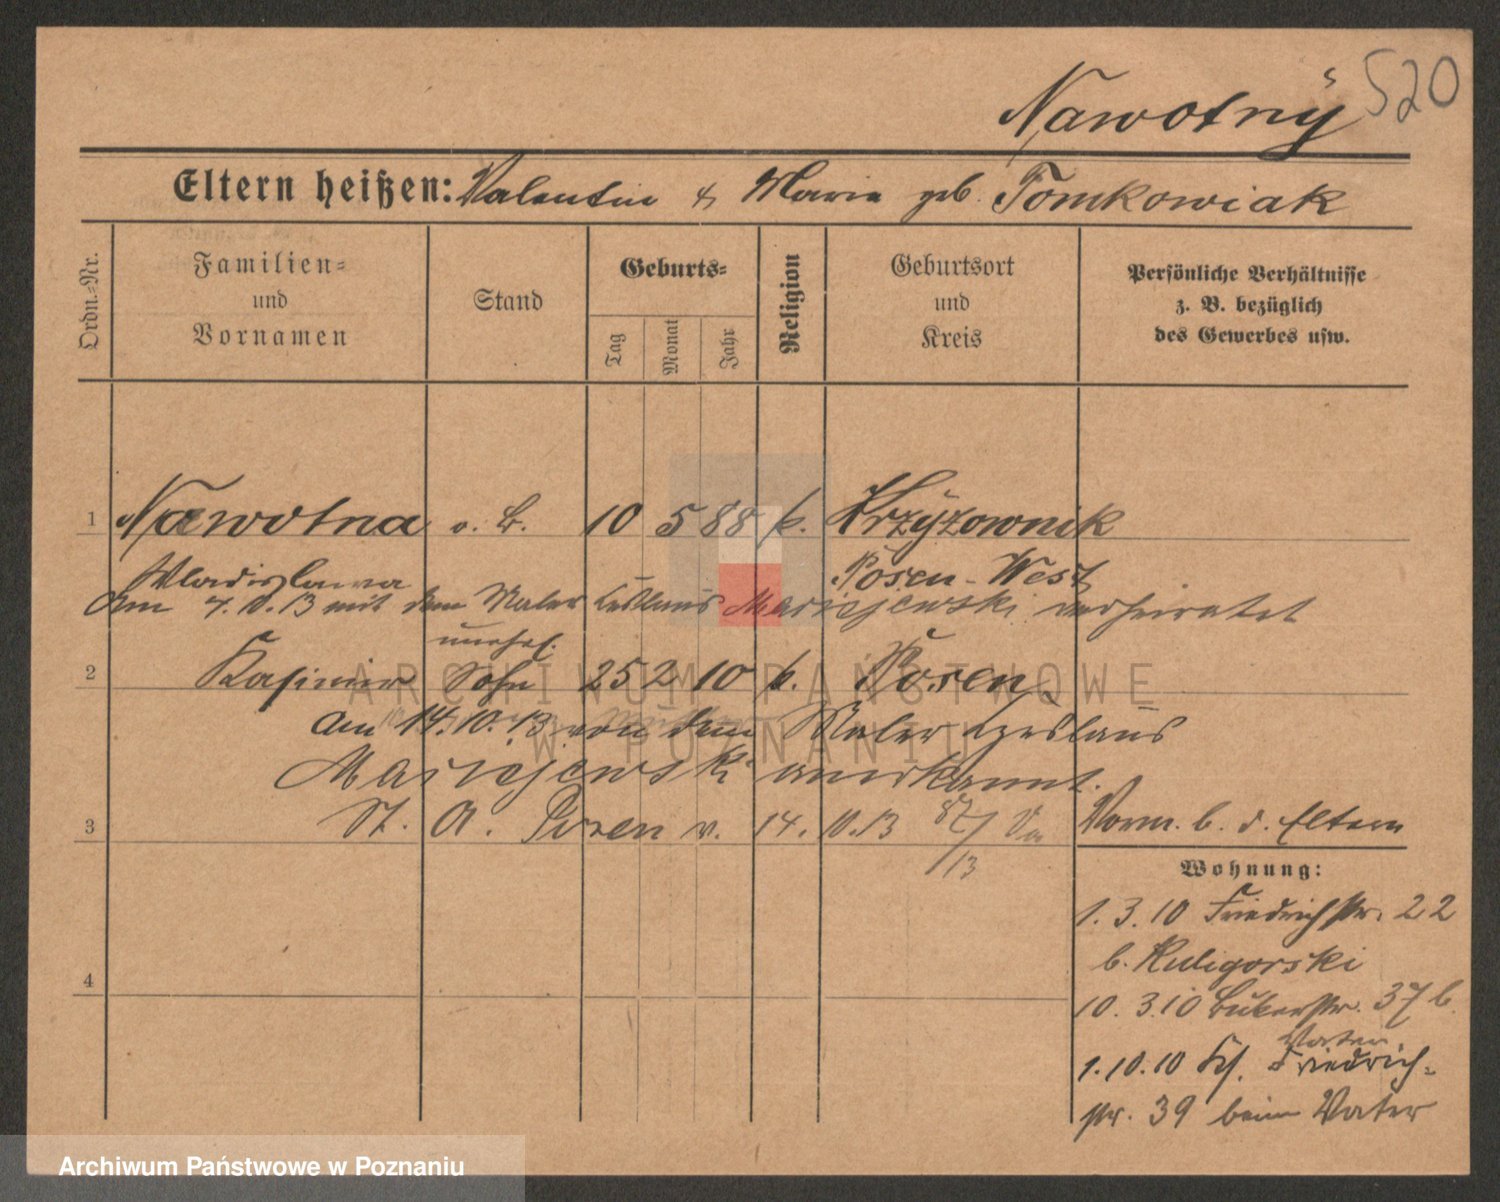 520
Nawotny
Eltern heißen: Valentin & Marie geb. Tomkowiak
Ordn.-Nr.
Familien-
und
Vornamen
Stand
Geburts-
Tag
Monat
Jahr
Religion
Geburtsort
und
Kreis
Persönliche Verhältnisse
z. B. bezüglich
des Gewerbes usw.
1 Nawotna o. B. 10 5 88 k. Krzyżownik
Wladislawa Posen-West
Am 7.10.13 mit dem Maler Maciejewski verheiratet
unehel.
2 Kasimir Sohn 25 2 10 k. Posen
Am 14.10.13 von dem Maler Czeslaus
Maciejewski anerkannt.
3 St. A. Posen v. 14. 10.13
Vorm. b. d. Eltern
Wohnung:
1.3.10 Friedrichstr. 22
b. Kuligorski
4
10.3.10 37 b.
Vater
1.10.10 Friedrich-
str. 39 beim Vater
ARCHIWUM PAŃSTWOWE
W POZNANIU
Archiwum Państwowe w Poznaniu